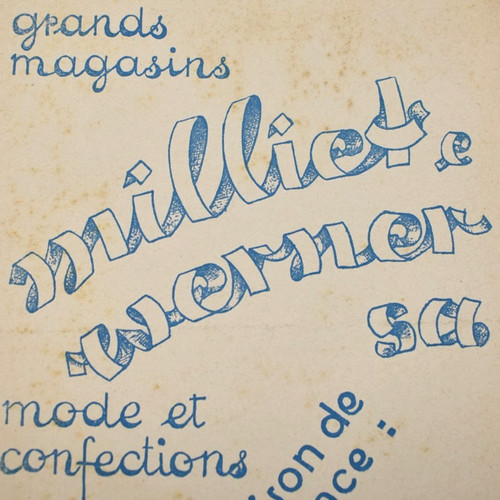 grands
magasins
milliet &
werner
sa
mode et
confections